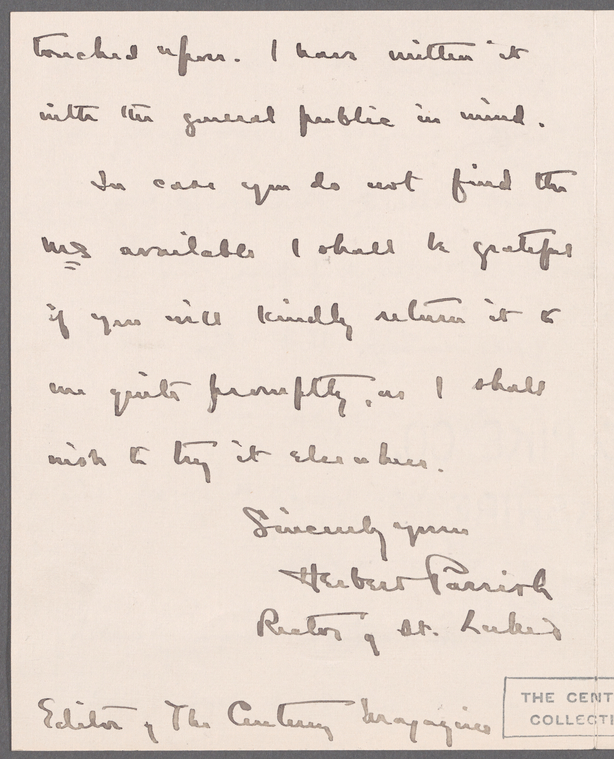 touched upon. I have written it
with the general public in mind.
In case you do not find the
MS available I shall be grateful
if you will kindly return it to
me quite promptly, as I shall
wish to try it elsewhere.
Sincerely yours
Herbert Parrish
Rector of St. Luke's
Editor of The Century Magazine
THE CENT
COLLECTI